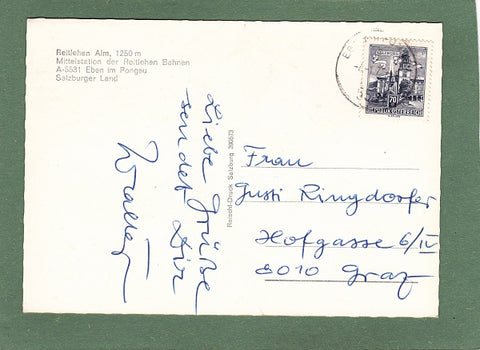 Reitlehen Alm, 1250 m
Mittelstation der Reitlehen Bahnen
A-5531 Eben im Pongau
Salzburger Land
Liebe Grüße
sendet Dir
Walter
Reischl-Druck Salzburg 390573
70
REPUBLIK ÖSTERREICH
Frau
Gusti Ringdorfer
Hofgasse 6/IV
8010 Graz